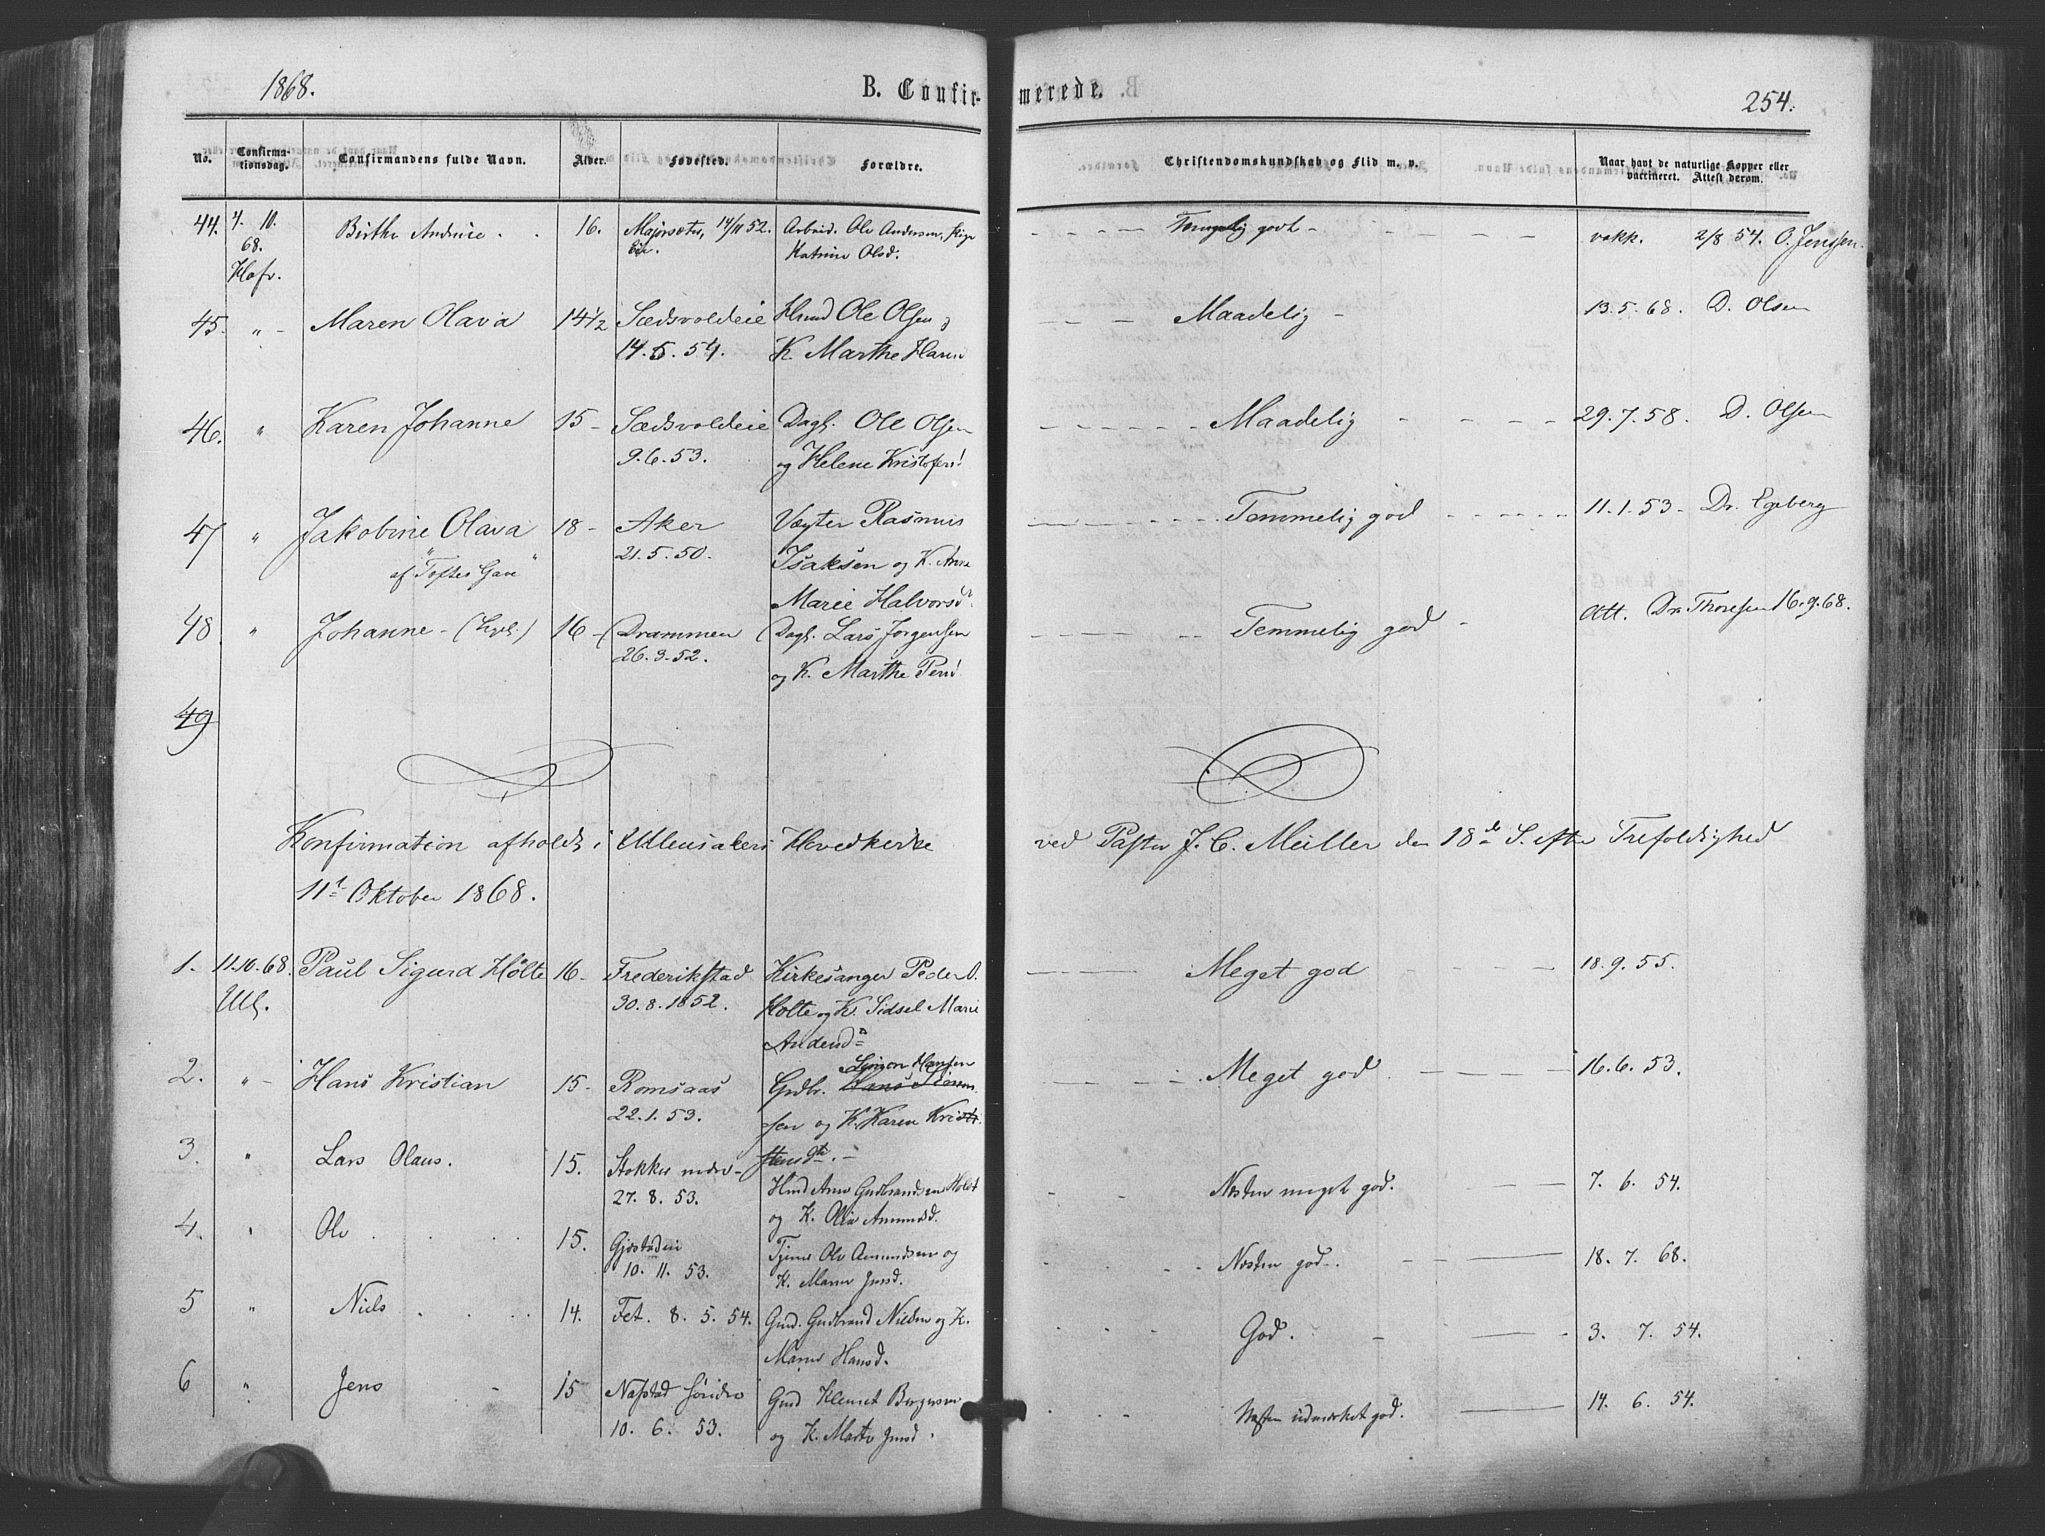 1868.
B. Confirmerede.
254.
No. Confirmationsdag. Confirmandens fulde Navn. Alder. Fødested. Forældre. Christendomskundskab og Flid m. v. Naar havt de naturlige Kopper eller vaccineret. Attest derom.
44. 4. 10. 68. Hofv. Birthe Andrine. 16. 14/11 52. Arbeid. Ole Andersen,
Katrine Olsd. Temmelig godt vakk. 2/8 54. O. Jenssen.
45. " - Maren Olava 14 1/2 Sædsvoldeie Hmd Ole Olsen og Maadelig 13.5.68. D. Olsen
14.5.54. K. Marthe
46. " Karen Johanne 15 - Sædsvoldeie Dagl. Ole Olsen Maadelig 29.7.58. D. Olsen
9.6.53. og Helene Kristofers!
47 " Jakobine Olava 18 - Aker Vægter Rasmus Temmelig god 11.1.53 - Dr. Egeberg
af "Toftes Gave" 21.5.50. Isaksen og K. Anne
Marie Halvorsdr.
48. " Johanne - 16 - (Drammen (Dagl. Lars Jørgensen Temmelig god - Att. Dr. Thoresen 16.9.68.
26.3.52. og K. Marthe
49
Konfirmation afholdt i Ullensakers Hovedkirke ved Pastor J. C. Müller den 18de S. efter Trefoldighed
11te Oktober 1868.
1. 11.10.68. Paul Sigurd Holte 16 - Frederikstad Kirkesanger Peder O. Meget god 18.9.55.
Ull. 30.8.1852. Holte og K. Sidsel Marie
Andersdr
2. " - Hans Kristian 15 - Romsaas Grdbr. Simon Hansen Meget god 16.6.53.
22.1.53. sen og K. Karen Kristi-
stensdt. -
3. " Lars Olaus. 15. Stokker nedre - Næsten meget god. 7. 6. 54.
27. 8. 53. Hmd Arne Gudbrandsen Holst
og K. Olia Amundsd.
4. " Ole 15. Gjestadeie Tjener Ole Amundsen og Næsten god. 18. 7. 68.
10. 11. 53. K. Maren Jensd.
5 " Niels 14. Fet. 8. 5. 54. Gmd. Gudbrand Nielsen og K. God. 3. 7. 54.
Maren Hansd.
6 " Jens 15 Nafstad søndre Gmd Klemet Borgersen Næsten udmerket god. 14. 6. 54.
10. 6. 53. og K. Marte Jensd.